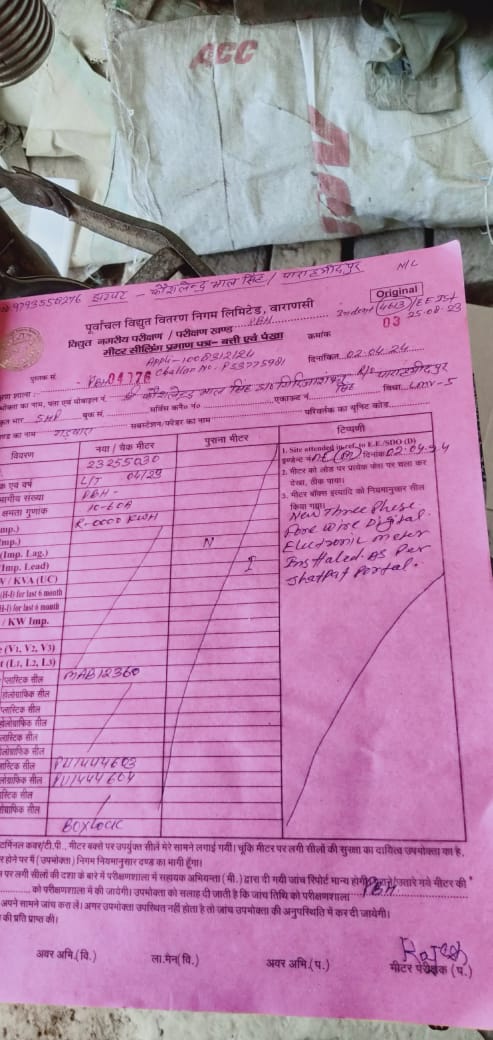 ACC
9793556276 झगपट - कौशलेन्द्र भाल सिंह / पाराहमीदपुर
M/L
Original
पूर्वांचल विद्युत वितरण निगम लिमिटेड, वाराणसी
4613 / EE 25.08.23
विद्युत नगरीय परीक्षण / परीक्षण खण्ड PBH
क्रमांक 03
मीटर सीलिंग प्रमाण पत्र- बत्ती एवं पंखा
Appli-1008312124
दिनांकित 02.04.24
पुस्तक सं. PBH 04776
Challan No- P53775981
कौशलेन्द्र भाल सिंह
विधा LMV-5
भार 5HP
बुक सं.
सर्विस कने० नं०
एकाउन्ट नं०
सबस्टेशन/फीडर का नाम
परिवर्तक का यूनिट कोड
विवरण
नया / चेक मीटर
पुराना मीटर
टिप्पणी
23255030
क एवं वर्ष L/T 04/23
भागीय संख्या PBH-
क्षमता गुणांक 10-60A
R-0000 KWH
1. Site attended in ref. to E.E./SDO (D)
दिनांक 02.04.24
2. मीटर को लोड पर प्रत्येक फेस पर चला कर
देखा, ठीक पाया।
3. मीटर बॉक्स इत्यादि को नियमानुसार सील
किया गया।
New Three Phese
Fore wire Digital
Electronic meter
Installed. As Per
Jhatpat Portal.
mp.)
mp.)
N
(Imp. Lag.)
Imp. Lead)
I
V / KVA (UC)
(H-I) for last 6 month
H-I) for last 6 month
/ KW Imp.
e (V1, V2, V3)
t (L1, L2, L3)
प्लास्टिक सील MAB12360
होलोग्राफिक सील
प्लास्टिक सील
होलोग्राफिक सील
लास्टिक सील
लोग्राफिक सील
स्टिक सील PV1444603
लोग्राफिक सील PV1444604
स्टिक सील
ग्राफिक सील
BOX LOCIC
टर्मिनल कवर/टी.पी., मीटर बक्से पर उपर्युक्त सीलें मेरे सामने लगाई गयीं। चूंकि मीटर पर लगी सीलों की सुरक्षा का दायित्व उपभोक्ता का है,
र होने पर मैं (उपभोक्ता) निगम नियमानुसार दण्ड का भागी हूँगा।
पर लगी सीलों की दशा के बारे में परीक्षणशाला में सहायक अभियन्ता (मी.) द्वारा दी गयी जांच रिपोर्ट मान्य होगी। हटाये/उतारे गये मीटर की
को परीक्षणशाला में की जायेगी। उपभोक्ता को सलाह दी जाती है कि जांच तिथि को परीक्षणशाला PBH
अपने सामने जांच करा लें। अगर उपभोक्ता उपस्थित नहीं होता है तो जांच उपभोक्ता की अनुपस्थिति में कर दी जायेगी।
की प्रति प्राप्त की।
Rajesh
अवर अभि.(वि.)
ला.मैन(वि.)
अवर अभि.(प.)
मीटर परीक्षक (प.)